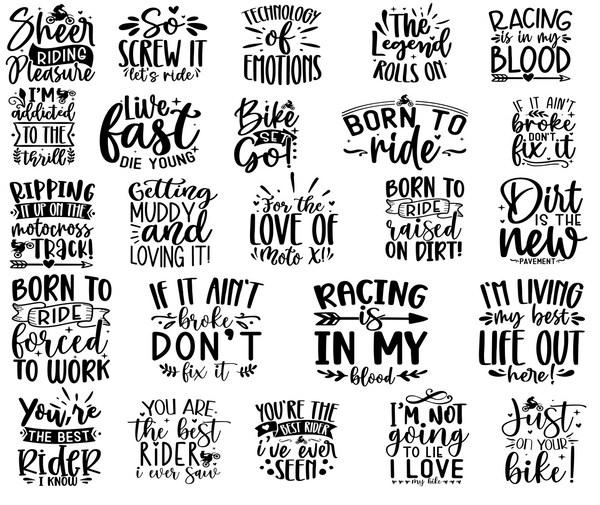 Sheer
RIDING
Pleasure
So
SCREW IT
let's ride
TECHNOLOGY
of
EMOTIONS
The
Legend
ROLLS ON
RACING
is in my
BLOOD
I'M
addicted
TO THE
thrill
Live
fast
DIE YOUNG
Bike
SET
Go!
BORN TO
ride
IF IT AIN'T
broke
DON'T
fix it
RIPPING
IT UP ON THE
motocross
TRACK!
Getting
MUDDY
and
LOVING IT!
For the
LOVE OF
Moto X!
BORN TO
RIDE
raised
ON DIRT!
Dirt
IS THE
new
PAVEMENT
BORN TO
RIDE
forced
TO WORK
IF IT AIN'T
broke
DON'T
fix it
RACING
is
IN MY
blood
I'M LIVING
my best
LIFE OUT
here!
You're
THE BEST
RIDER
I KNOW
YOU ARE
the best
RIDER
i ever saw
YOU'RE THE
BEST RIDER
i've ever
SEEN
I'M NOT
going
TO LIE
I LOVE
my bike
Just
ON YOUR
bike!